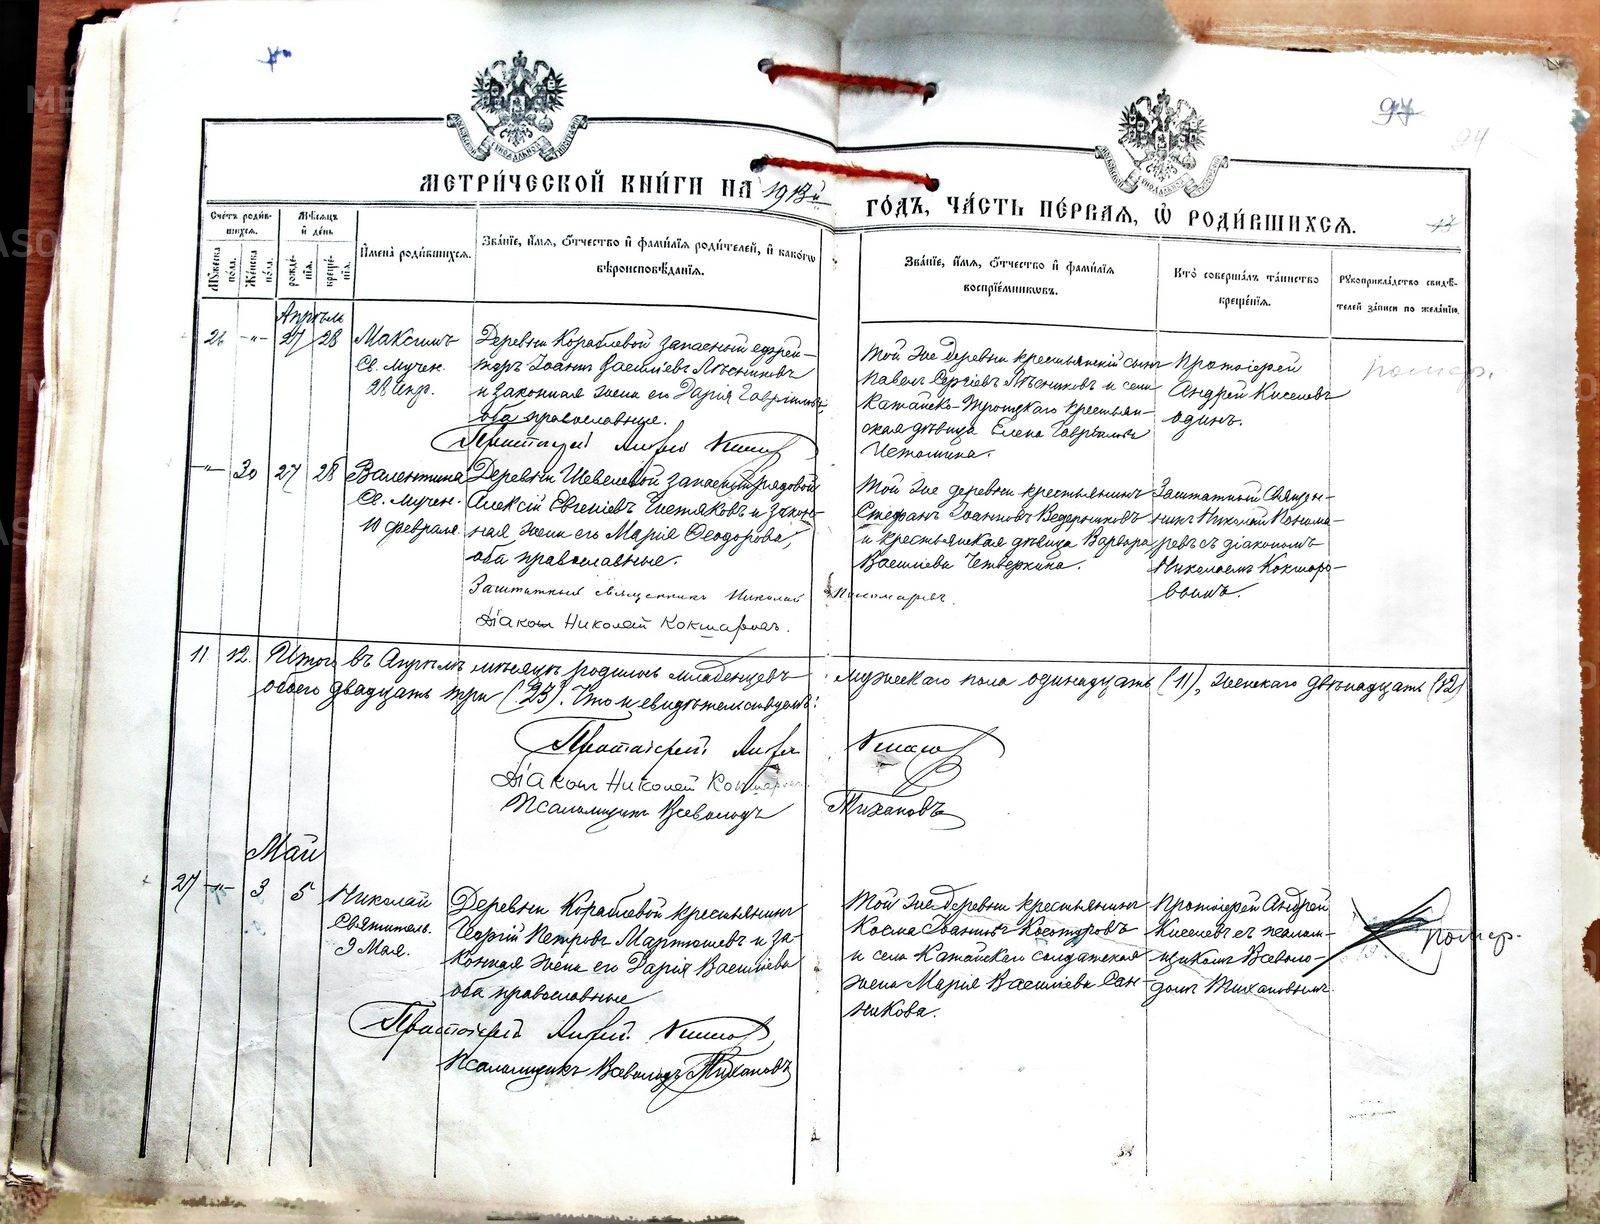 94
МЕТРИ́ЧЕСКОЙ КНИ́ГИ НА 1913й ГО́ДЪ, ЧА́СТЬ ПЕ́РВАЯ, Ѡ РОДИ́ВШИХСЯ.
Сче́тъ роди́в-
шихся.
Мѣ́сяцъ
и҆ де́нь
Му́жеска по́ла.
Же́нска по́ла.
рожде́-
нїѧ.
креще́-
нїѧ.
И҆мена̀ роди́вшихся.
Зва́нїе, и҆́мѧ, ѻ҆́тчество и҆ фами́лїѧ роди́телей, и҆ како́гѡ
вѣроисповѣ́данїѧ.
Зва́нїе, и҆́мѧ, ѻ҆́тчество и҆ фами́лїѧ
воспрїе́мникѡвъ.
Кто̀ соверша́лъ та́инство
креще́нїѧ.
Рꙋкоприкла́дство свидѣ́-
телей за́писи по жела́нїю.
Апрѣль
26 -"- 27 28
Максимъ
Св. Мучен.
28 Апр.
Деревни Кораблевой запасный ефрей-
торъ Іоаннъ Василіевъ Лѣсниковъ
и законная жена его Дарія Гавріилова,
оба православные.
Протоіерей Андрей Киселевъ
Той же деревни крестьянскій сынъ
Павелъ Сергіевъ Лѣсниковъ и села
Катайско-Троицкаго крестьян-
ская дѣвица Елена Гавріилова
Протоіерей
Андрей Киселевъ
одинъ.
помер.
-"- 30 27 28
Валентина
Св. Мучен.
10 февраля
Деревни Шевелевой запасный рядовой
Алексій Евгеніевъ и закон-
ная жена его Марія Ѳеодорова,
оба православные.
Заштатный священникъ Николай Пономаревъ.
Діаконъ Николай Кокшаровъ.
Той же деревни крестьянинъ
Стефанъ Іоанновъ Ведерниковъ
и крестьянская дѣвица Варвара
Василіева Четверкина.
Заштатный Священ-
никъ Николай Понома-
ревъ съ діакономъ
Николаемъ Кокшаро-
вымъ.
11 12. Итого въ Апрѣлѣ мѣсяцѣ родилось младенцевъ мужескаго пола одинадцать (11), женскаго двѣнадцать (12)
обоего двадцать три (23). Что и свидѣтельствуемъ:
Протоіерей Андрей Киселевъ
Діаконъ Николай Кокшаровъ
Псаломщикъ Всеволодъ Тихановъ
Май
27 -"- 3 5
Николай
Святитель.
9 Мая.
Деревни Кораблевой крестьянинъ
Георгій Петровъ Мартюшевъ и за-
конная жена его Дарія Василіева
оба православные
Протоіерей Андрей Киселевъ
Псаломщикъ Всеволодъ Тихановъ
Той же деревни крестьянинъ
Косма Ивановъ
и села Катайскаго солдатская
жена Марія Василіева Сан-
никова.
Протоіерей Андрей
Киселевъ съ псалом-
щикомъ Всеволо-
домъ Тихановымъ.
помер.